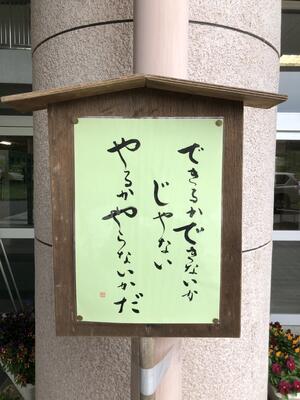 できるかできないか
じゃない
やるかやらないかだ